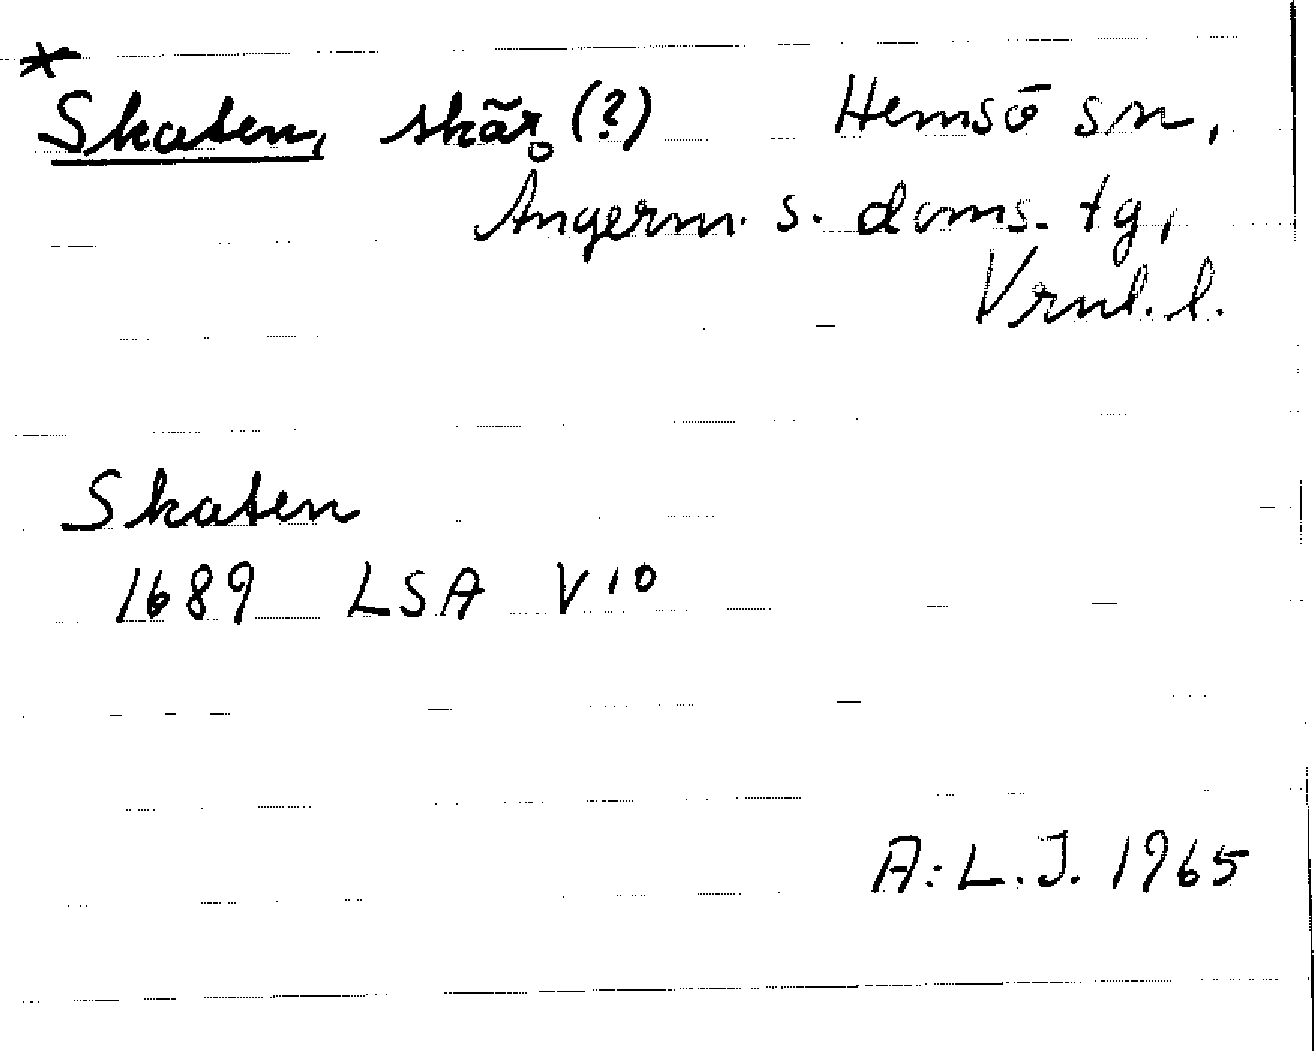 * Skaten, skär (?) Hemsö sn,
Ångerm. s. doms. tg,
Vrnl. l.
Skaten
1689 LSA V 10
A.L.J. 1965